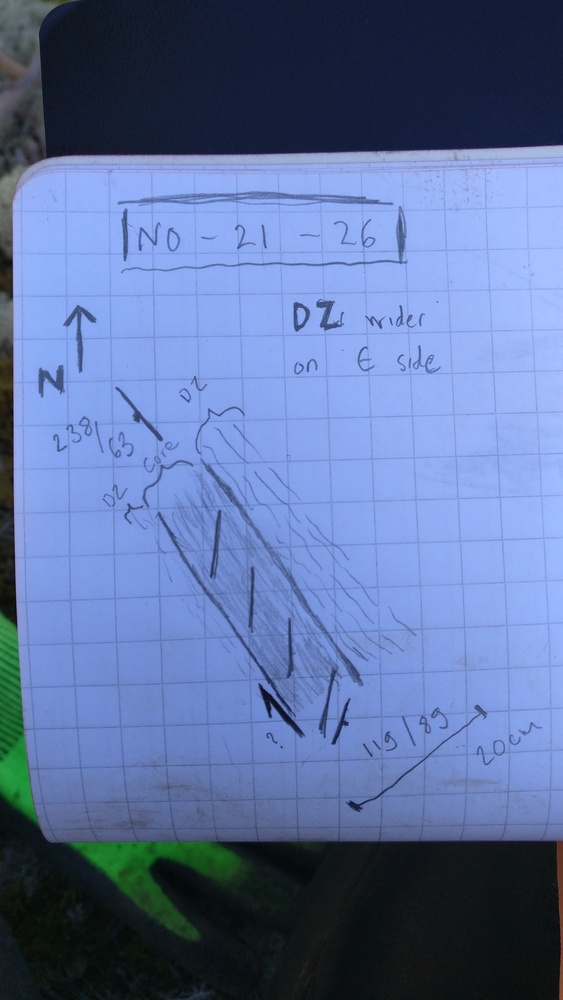 NO - 21 - 26
DZ wider
on E side
N
DZ
238/63
core
DZ
?
119/89
20cm